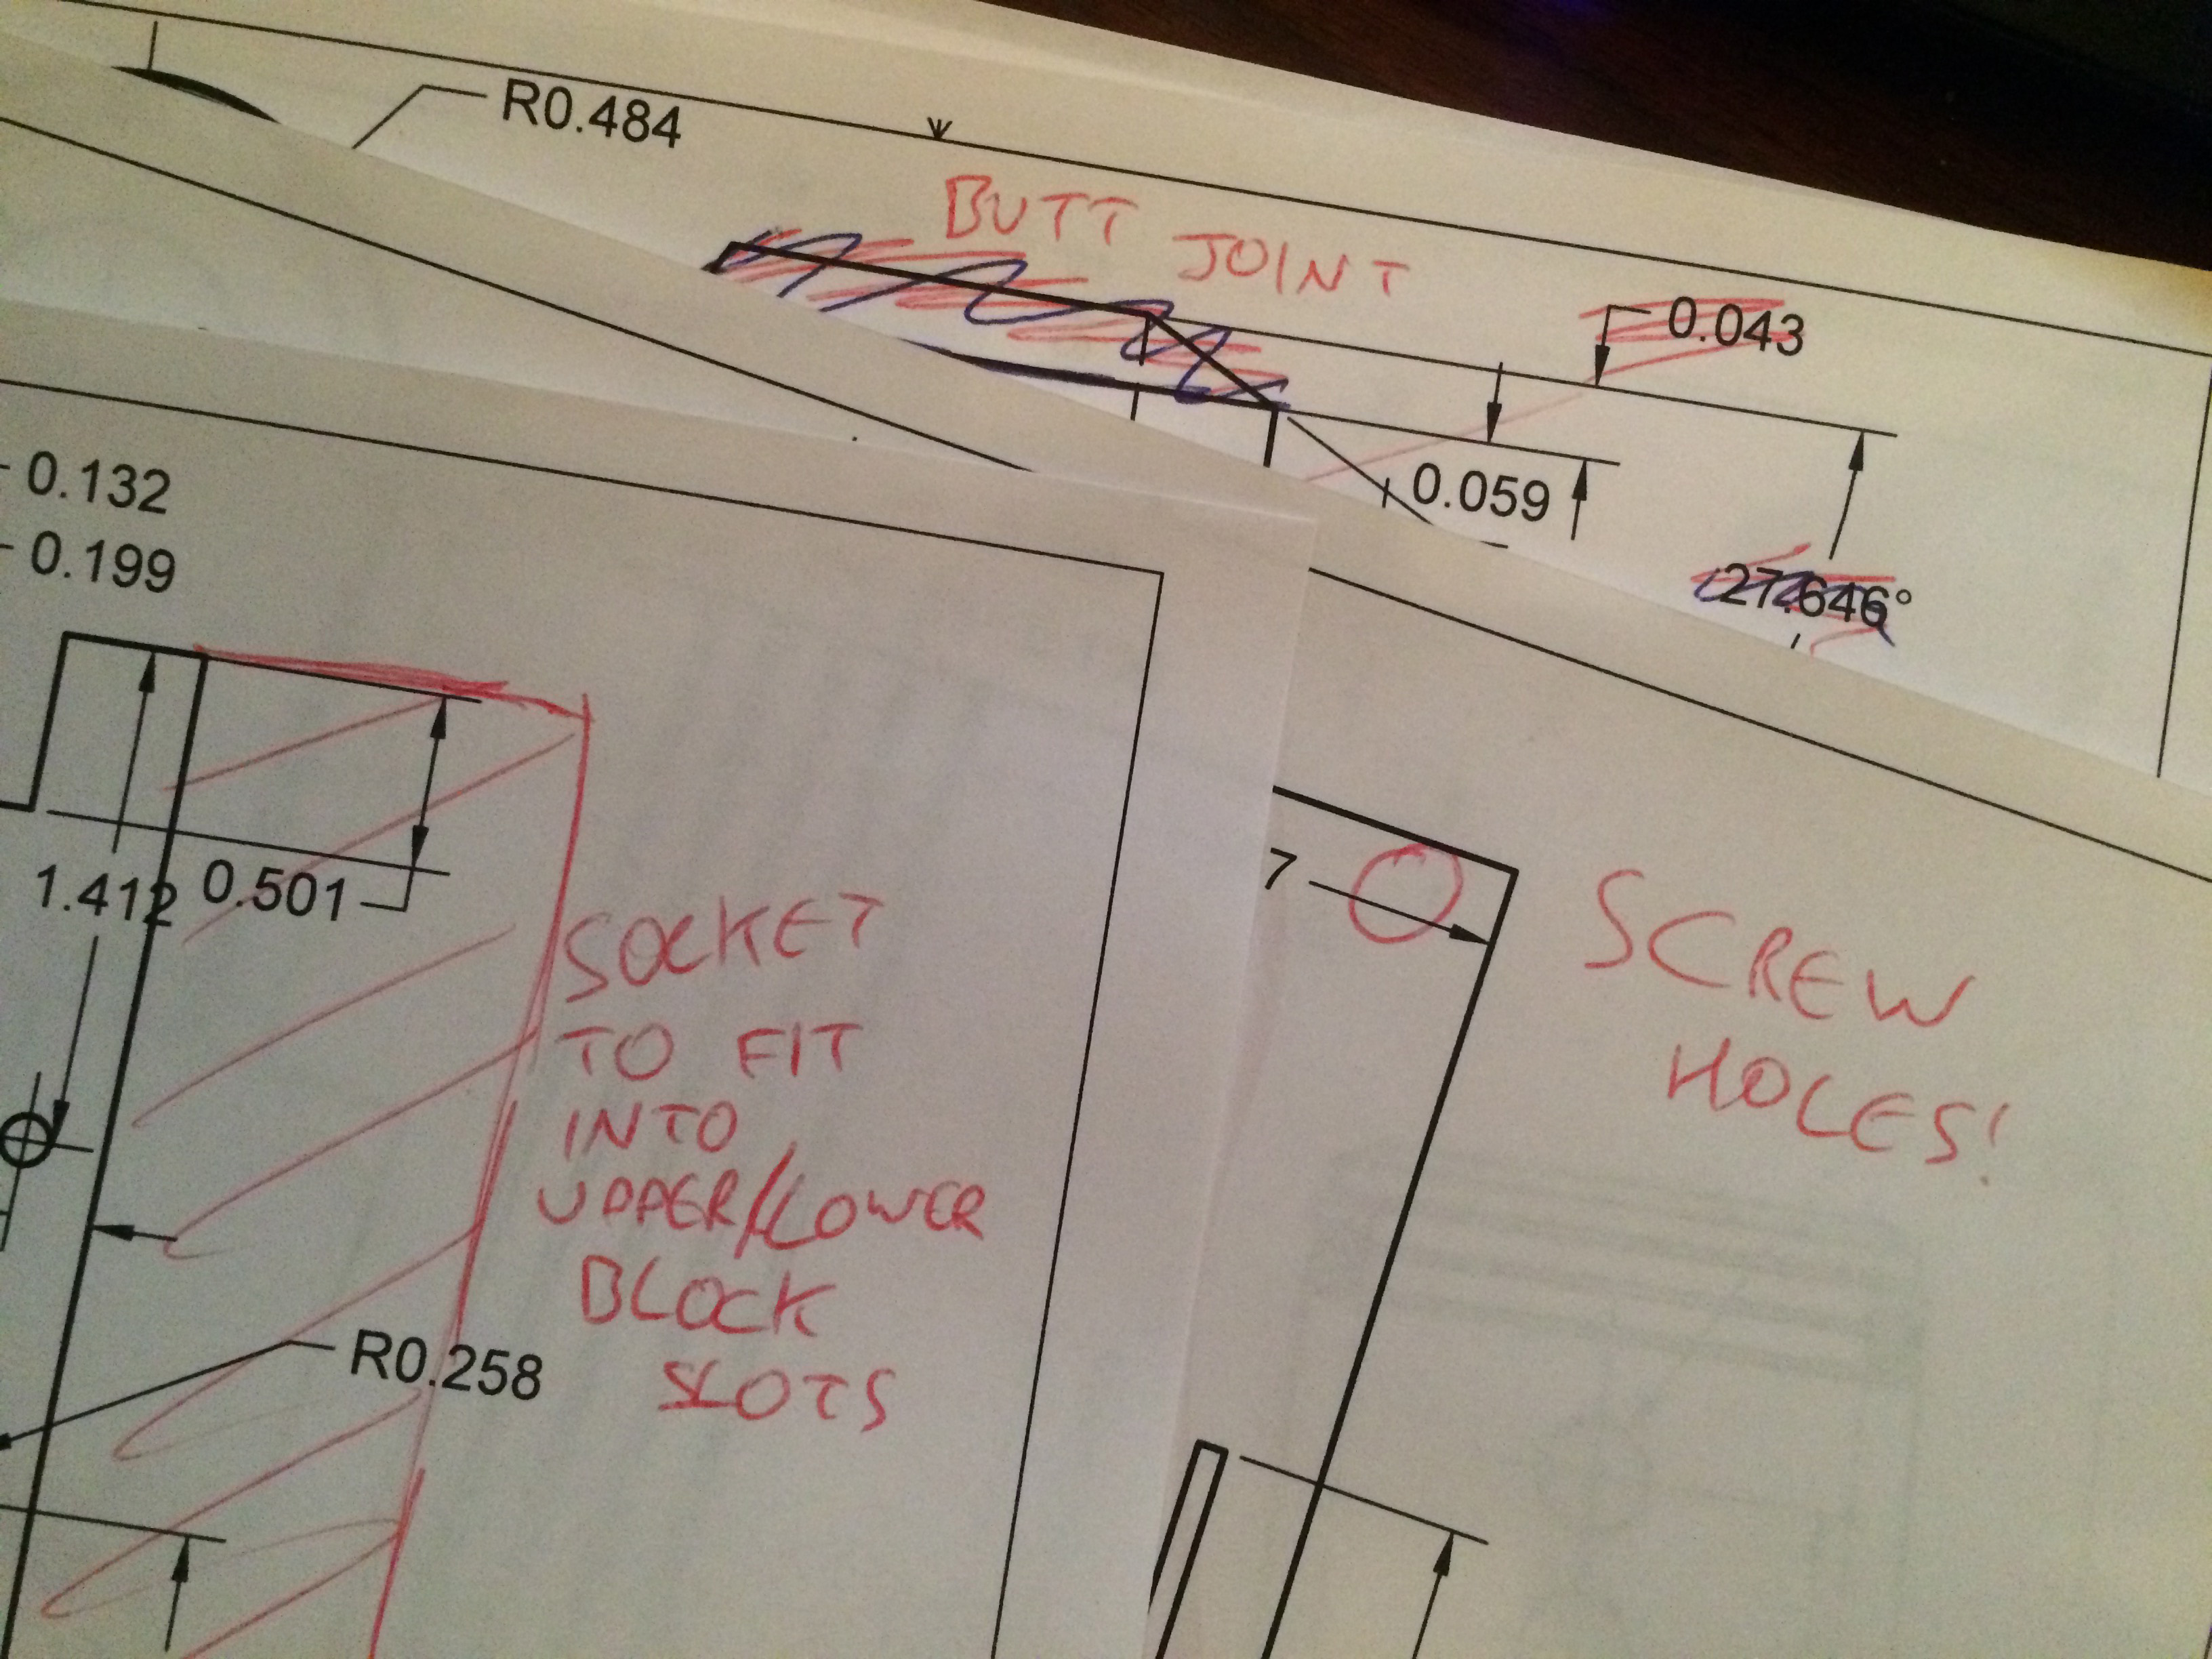 R0.484
BUTT JOINT
0.043
0.059
27.646°
0.132
0.199
1.412
0.501
SOCKET
TO FIT
INTO
UPPER/LOWER
BLOCK
SLOTS
R0.258
7
SCREW
HOLES!